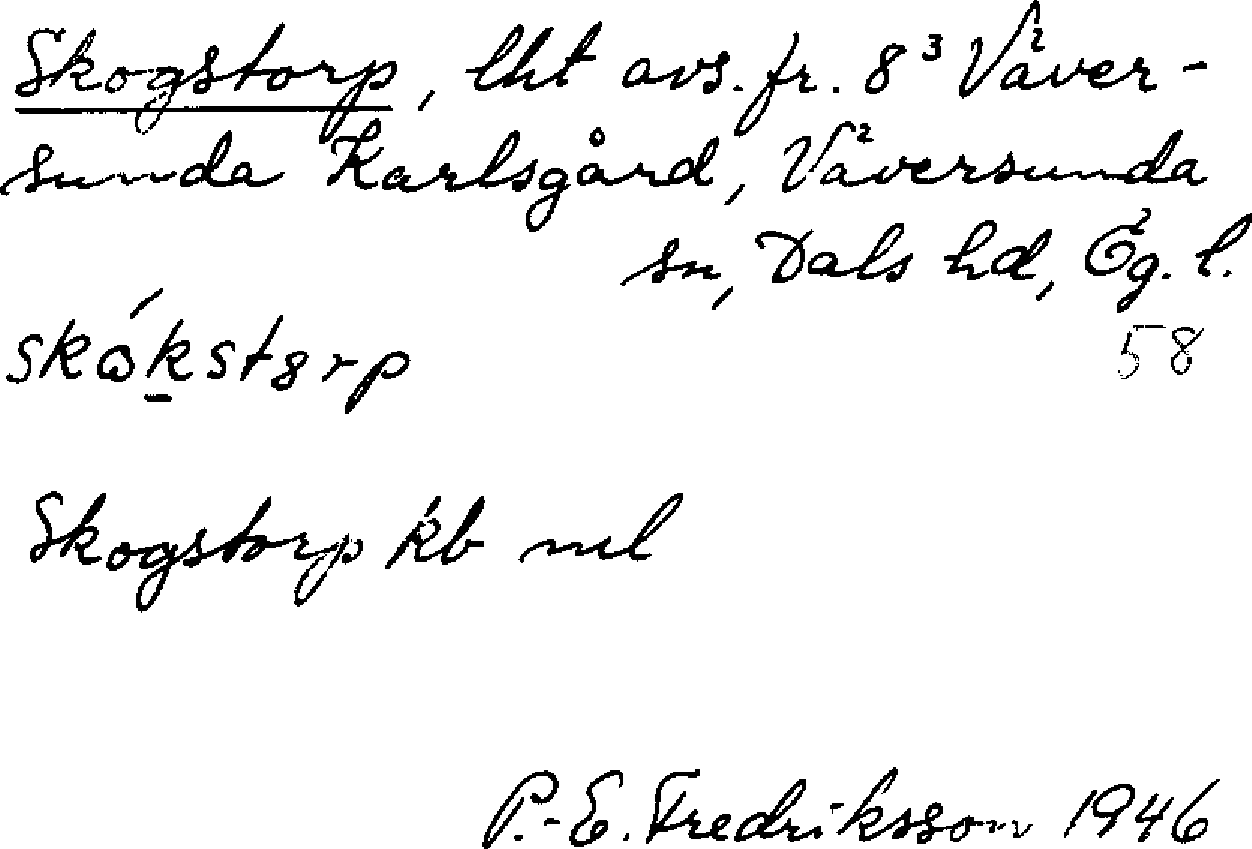 Skogstorp, lht avs. fr. 8³ Väver-
sunda Karlsgård, Väversunda
sn, Dals hd, Ög. l.
58
Skogstorp kb ml
P.-E. Fredriksson 1946